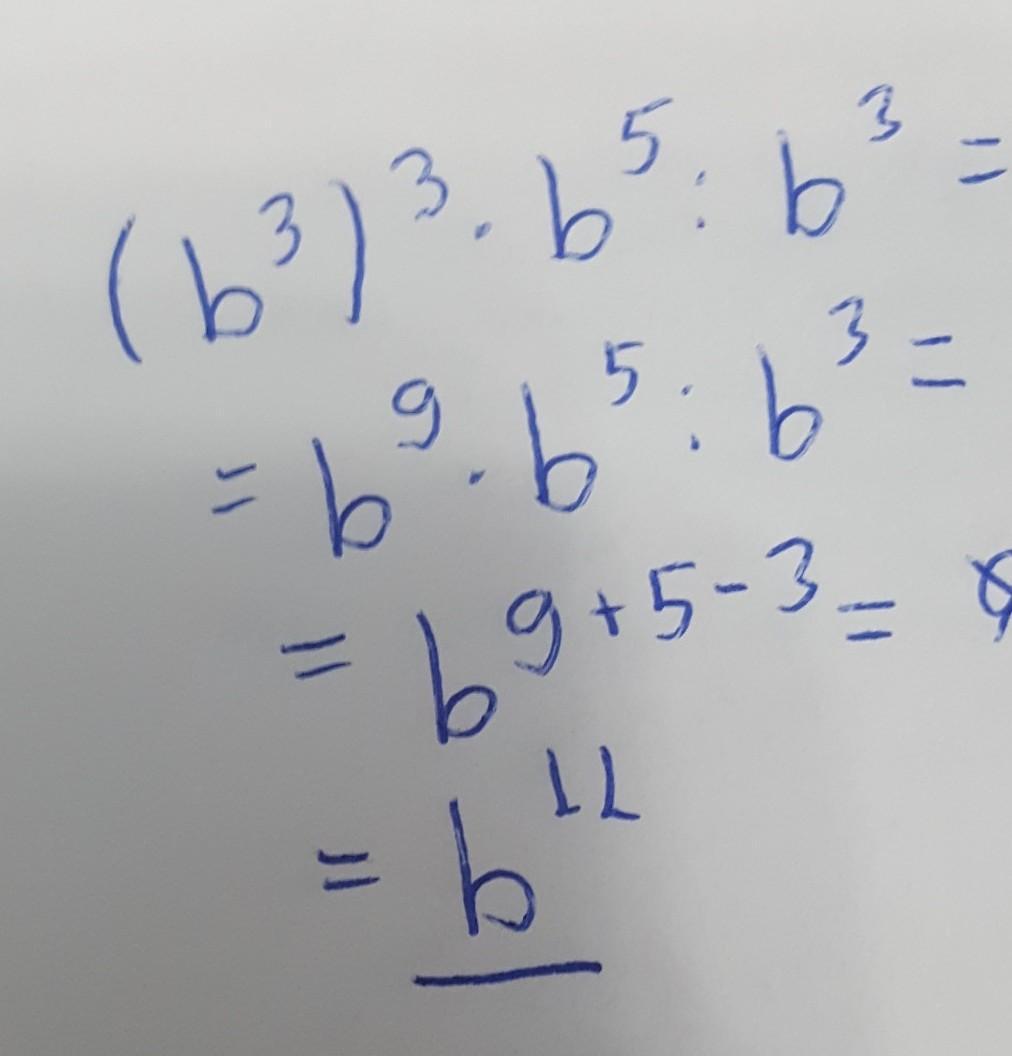 (b³)³ · b⁵ : b³ =
= b⁹ · b⁵ : b³ =
= b⁹⁺⁵⁻³ =
= b¹¹